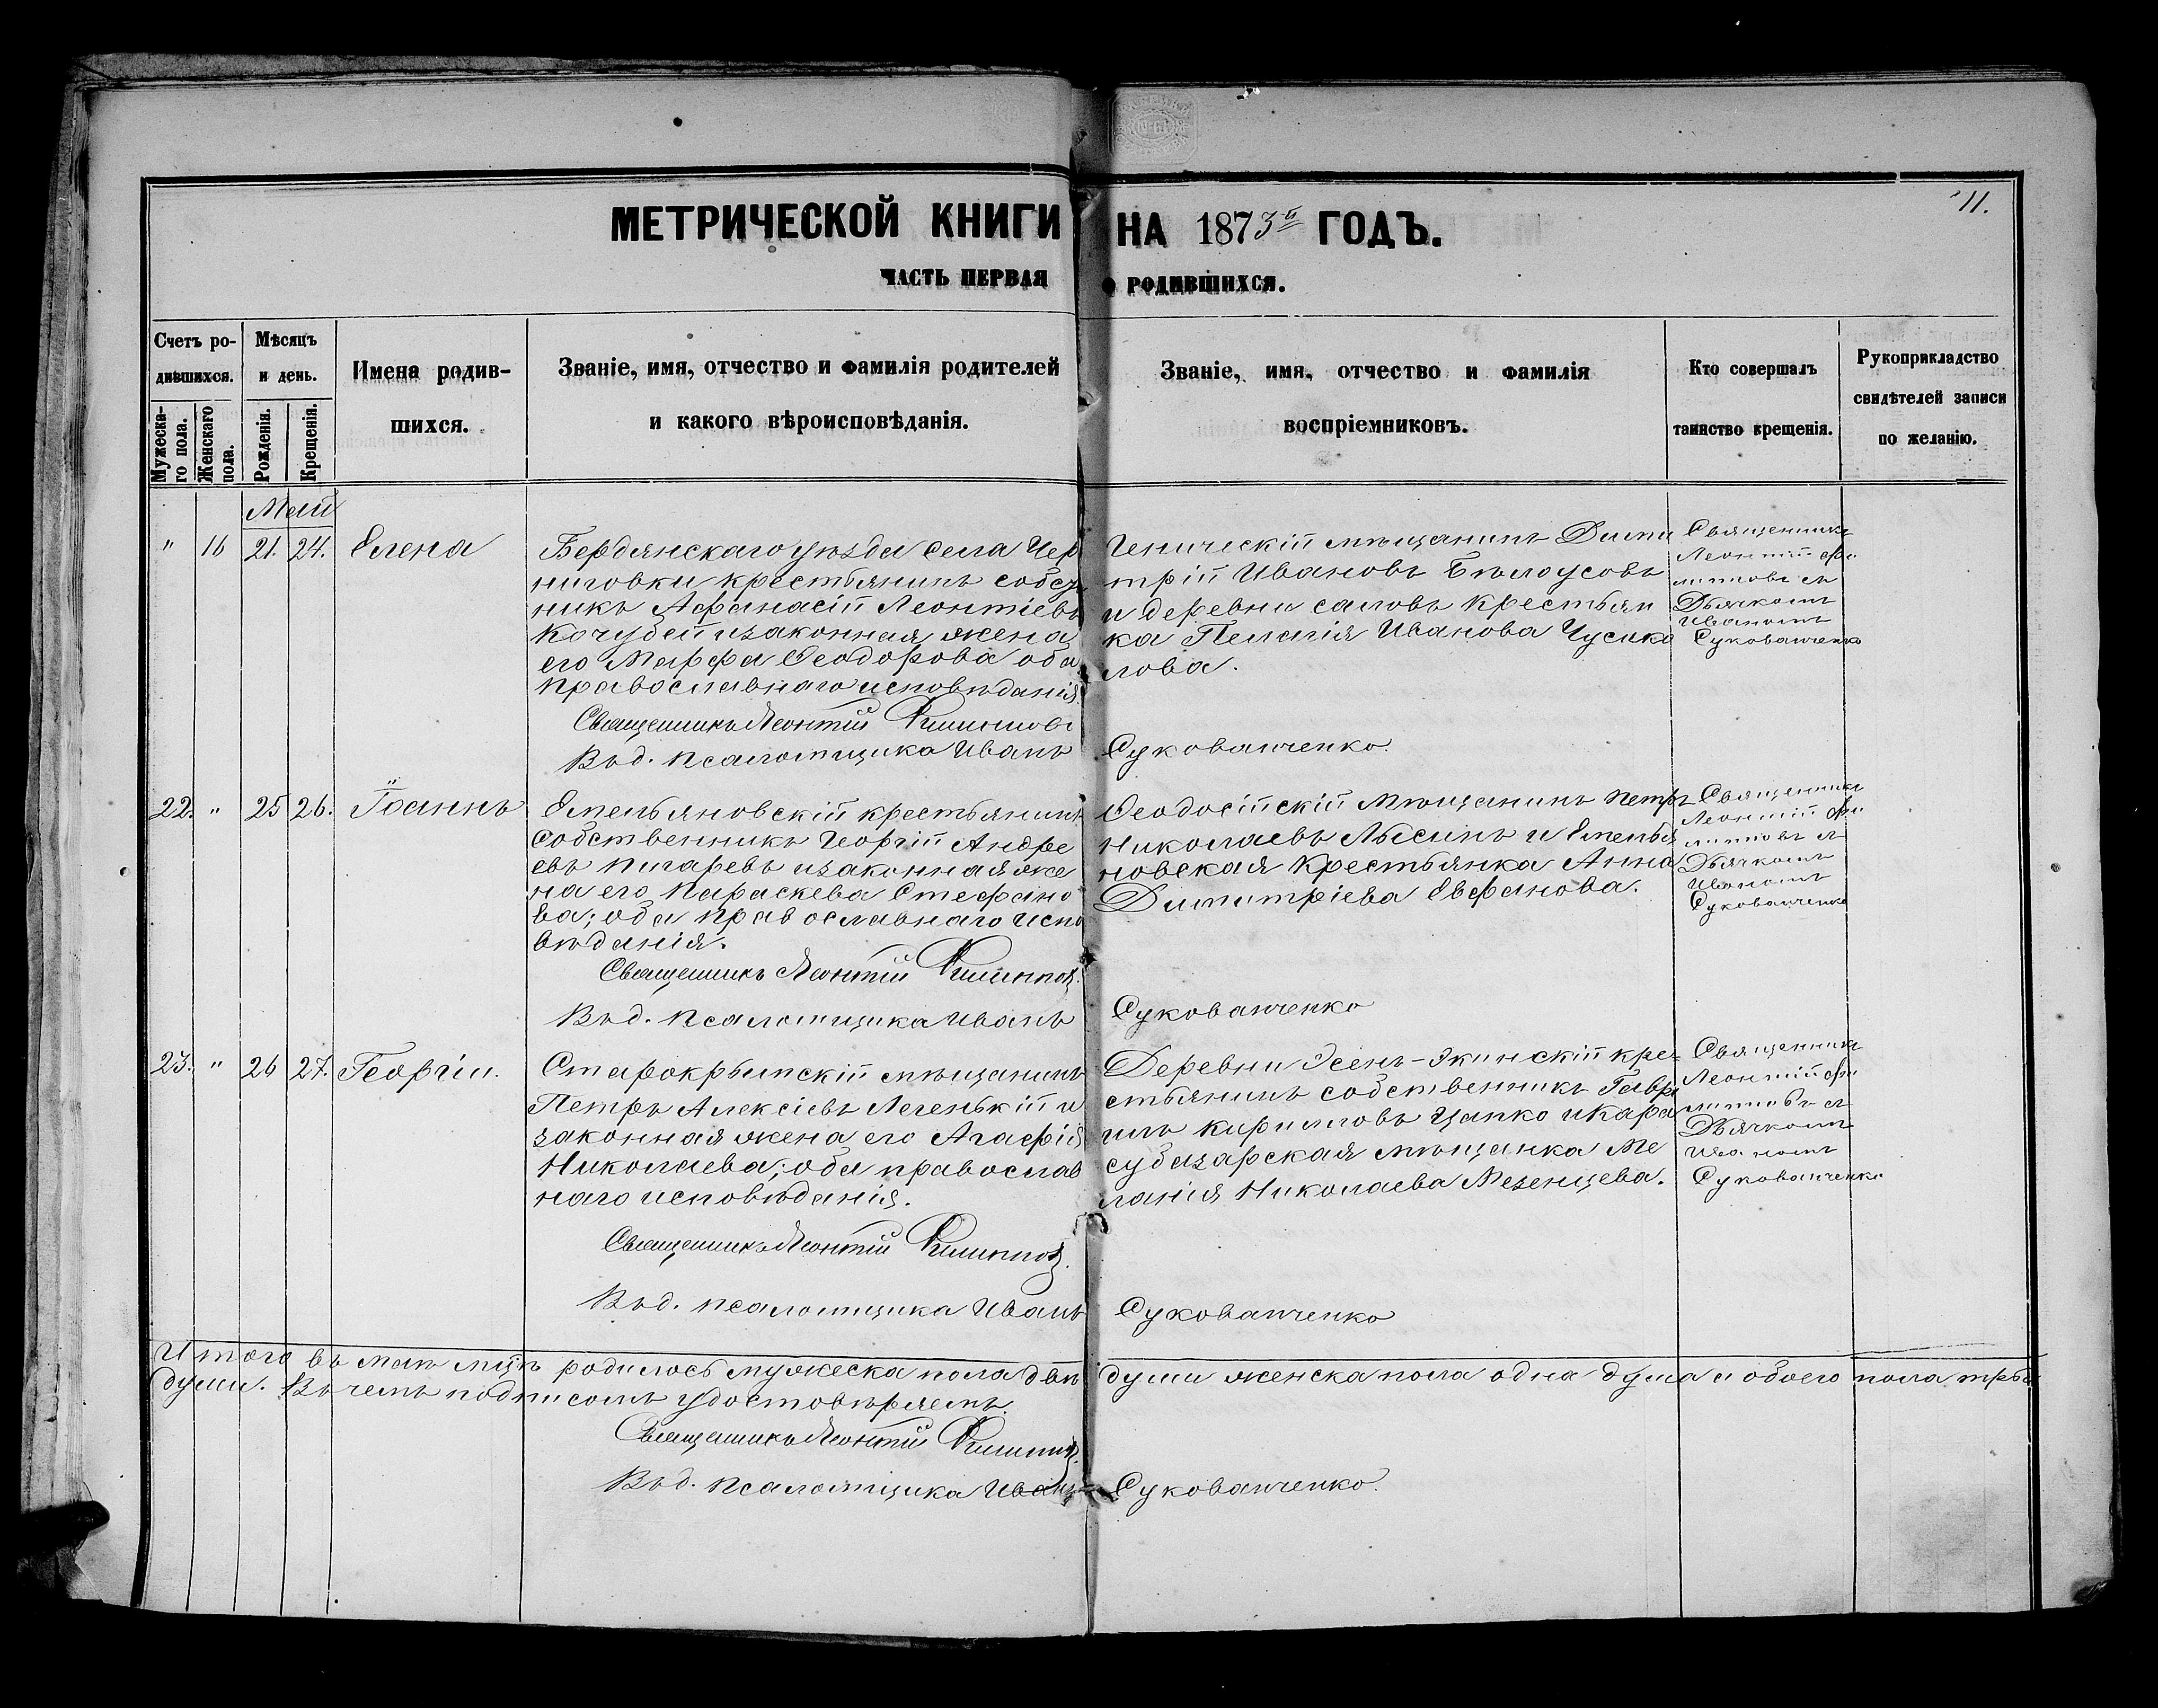 11.
МЕТРИЧЕСКОЙ КНИГИ НА 1873й ГОДЪ.
ЧАСТЬ ПЕРВАЯ О РОДИВШИХСЯ.
Счетъ ро-
дившихся.
Мужеска-
го пола.
Женскаго
пола.
Мѣсяцъ
и день.
Рожденія.
Крещенія.
Имена родив-
шихся.
Званіе, имя, отчество и фамилія родителей
и какого вѣроисповѣданія.
Званіе, имя, отчество и фамилія
воспріемниковъ.
Кто совершалъ
таинство крещенія.
Рукоприкладство
свидѣтелей записи
по желанію.
Май
" 16 21. 24. Елена
Бердянскаго уѣзда села Чер
ниговки крестьянинъ собст
никъ Афанасій Леонтіевъ
Кочубей и законная жена
его Марфа Ѳеодорова оба
православнаго исповѣданія
Священникъ Леонтій Филипповъ
Вѣд. псаломщика Иванъ Сукованченко.
Геническій мѣщанинъ Дими
трій Ивановъ Бѣлоусовъ
и деревни крестьян
ка Пелагія Иванова
лова.
Священникъ
Леонтій Фи
липповъ съ
Дьячкомъ
Иваномъ
Сукованченко
22. " 25 26. Іоаннъ
Емельяновскій крестьянинъ
собственникъ Георгій Андре
евъ Пигаревъ и законная же
на его Параскева Стефано
ва; оба православнаго испо
вѣданія.
Священникъ Леонтій Филипповъ.
Вѣд. псаломщика Иванъ Сукованченко
Ѳеодосійскій мѣщанинъ Петръ
Николаевъ Лысинъ и Емелья
новская крестьянка Анна
Димитріева Евфанова.
Священникъ
Леонтій Фи
липповъ съ
Дьячкомъ
Иваномъ
Сукованченко
23. " 26 27. Георгій.
Старокрымскій мѣщанинъ
Петръ Алексіевъ Легенькій и
законная жена его Агафія
Николаева; оба православ
наго исповѣданія.
Священникъ Леонтій Филипповъ.
Вѣд. псаломщика Иванъ Сукованченко
Деревни Эсенъ-Экинскій кре-
стьянинъ собственникъ Гаври
илъ Кириловъ Цапко и Кара
субазарская мѣщанка Ме
ланія Николаева Мезенцева.
Священникъ
Леонтій Фи
липповъ съ
Дьячкомъ
Иваномъ
Сукованченко
Итого въ маѣ мцѣ родилось мужеска пола двѣ души женска пола одна душа а обоего пола три
души. Въ чемъ подписомъ удостовѣряемъ.
Священникъ Леонтій Филипповъ.
Вѣд. псаломщика Иванъ Сукованченко.